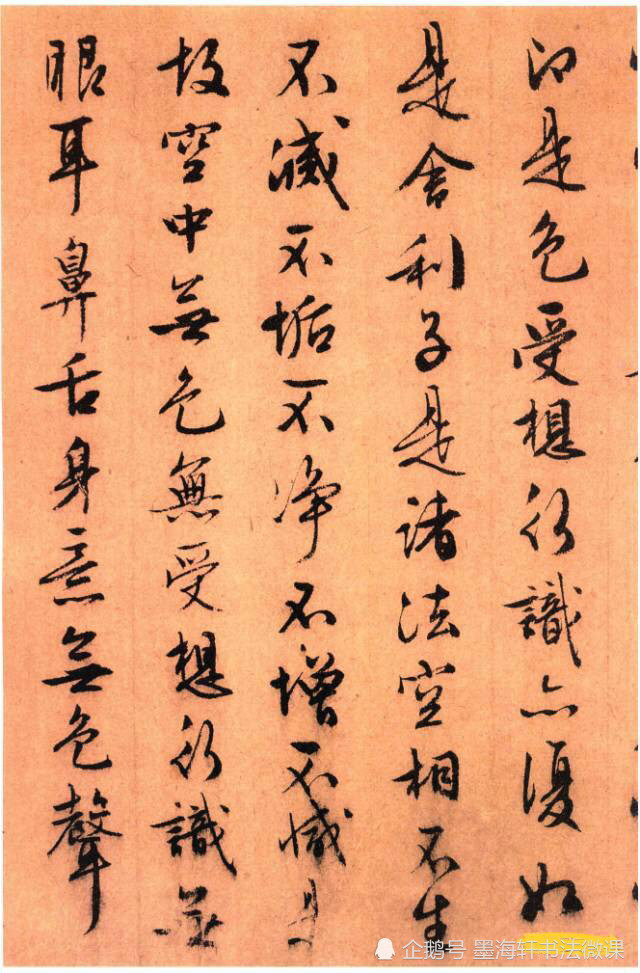 即是色受想行識亦復如
是舍利子是諸法空相不生
不滅不垢不淨不增不減是
故空中無色無受想行識無
眼耳鼻舌身意無色聲
企鹅号 墨海轩书法微课